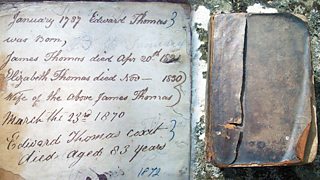 January 1787 Edward Thomas
was Born,
James Thomas died Apr 20th
Elizabeth Thomas died Nov — 1830
Wife of the above James Thomas
March the 23rd 1870
Edward Thomas
died Aged 83 years
1872